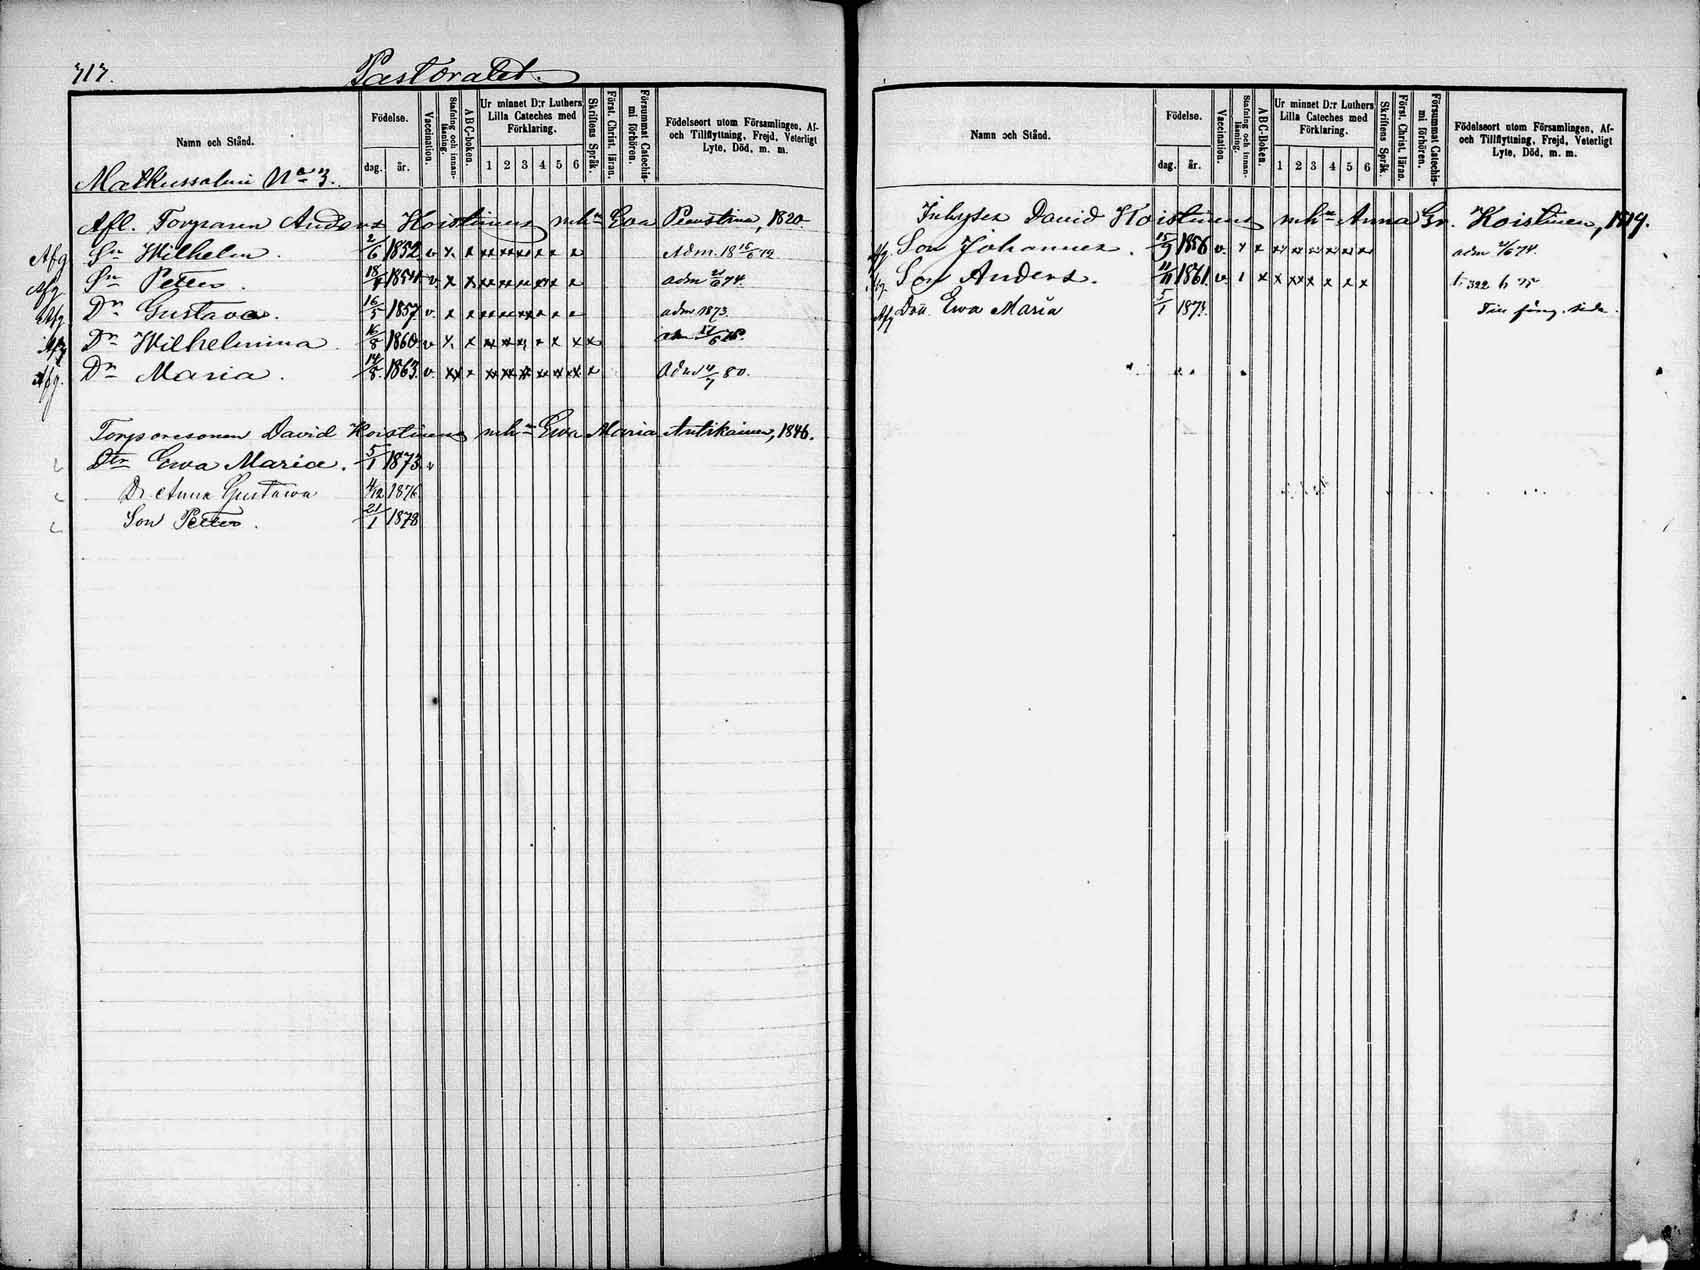 717. Pastoratet.
Namn och Stånd. Födelse. dag. år. Vaccination. Stafning och innanläsning. A B C-boken. Ur minnet D:r Luthers Lilla Cateches med Förklaring. 1 2 3 4 5 6 Skriftens Språk. Först. Christ. läran. Försummat Catechismi förhören. Födelseort utom Församlingen, Af- och Tillflyttning, Frejd, Veterligt Lyte, Död, m. m.
No 3.
Afl. Torparen Anders Koistinens enka Eva 1820.
Afg Sn Wilhelm. 2/6 1852 v x x x x x x x x Adm. 18 15/6 72
Afg Sn Petter. 18/ 1854 v x x x x x x x x adm 21/6 74.
Afg Dr Gustava. 16/5 1857 v. x x x x x x x x adm 1873.
Afg Dr Wilhelmina. 16/8 1860 v x x x x x x x x x
Afg. Dr Maria. 14/8 1863 v. xx x x x x x x x x Adm 4/7 80.
Torparesonen David Koistinens Ewa Maria Antikainen, 1846.
Dtr Ewa Maria. 5/1 1873 v
Dr. Anna Gustawa 4/12 1876
Son Petter. 21/1 1878
Namn och Stånd. Födelse. dag. år. Vaccination. Stafning och innanläsning. A B C-boken. Ur minnet D:r Luthers Lilla Cateches med Förklaring. 1 2 3 4 5 6 Skriftens Språk. Först. Christ. läran. Försummat Catechismi förhören. Födelseort utom Församlingen, Af- och Tillflyttning, Frejd, Veterligt Lyte, Död, m. m.
Inhyses David Koistinens Anna Gr. Koistinen, 1819.
Afg. Son Johannes. 15/9 1856 v. x x x x x x x x adm /6 74.
Afg. Son Anders. 1861. v. 1 x x x x x x x t. 322 h 75
Afg Dtr. Ewa Maria 5/1 1873. Till föreg. sida.